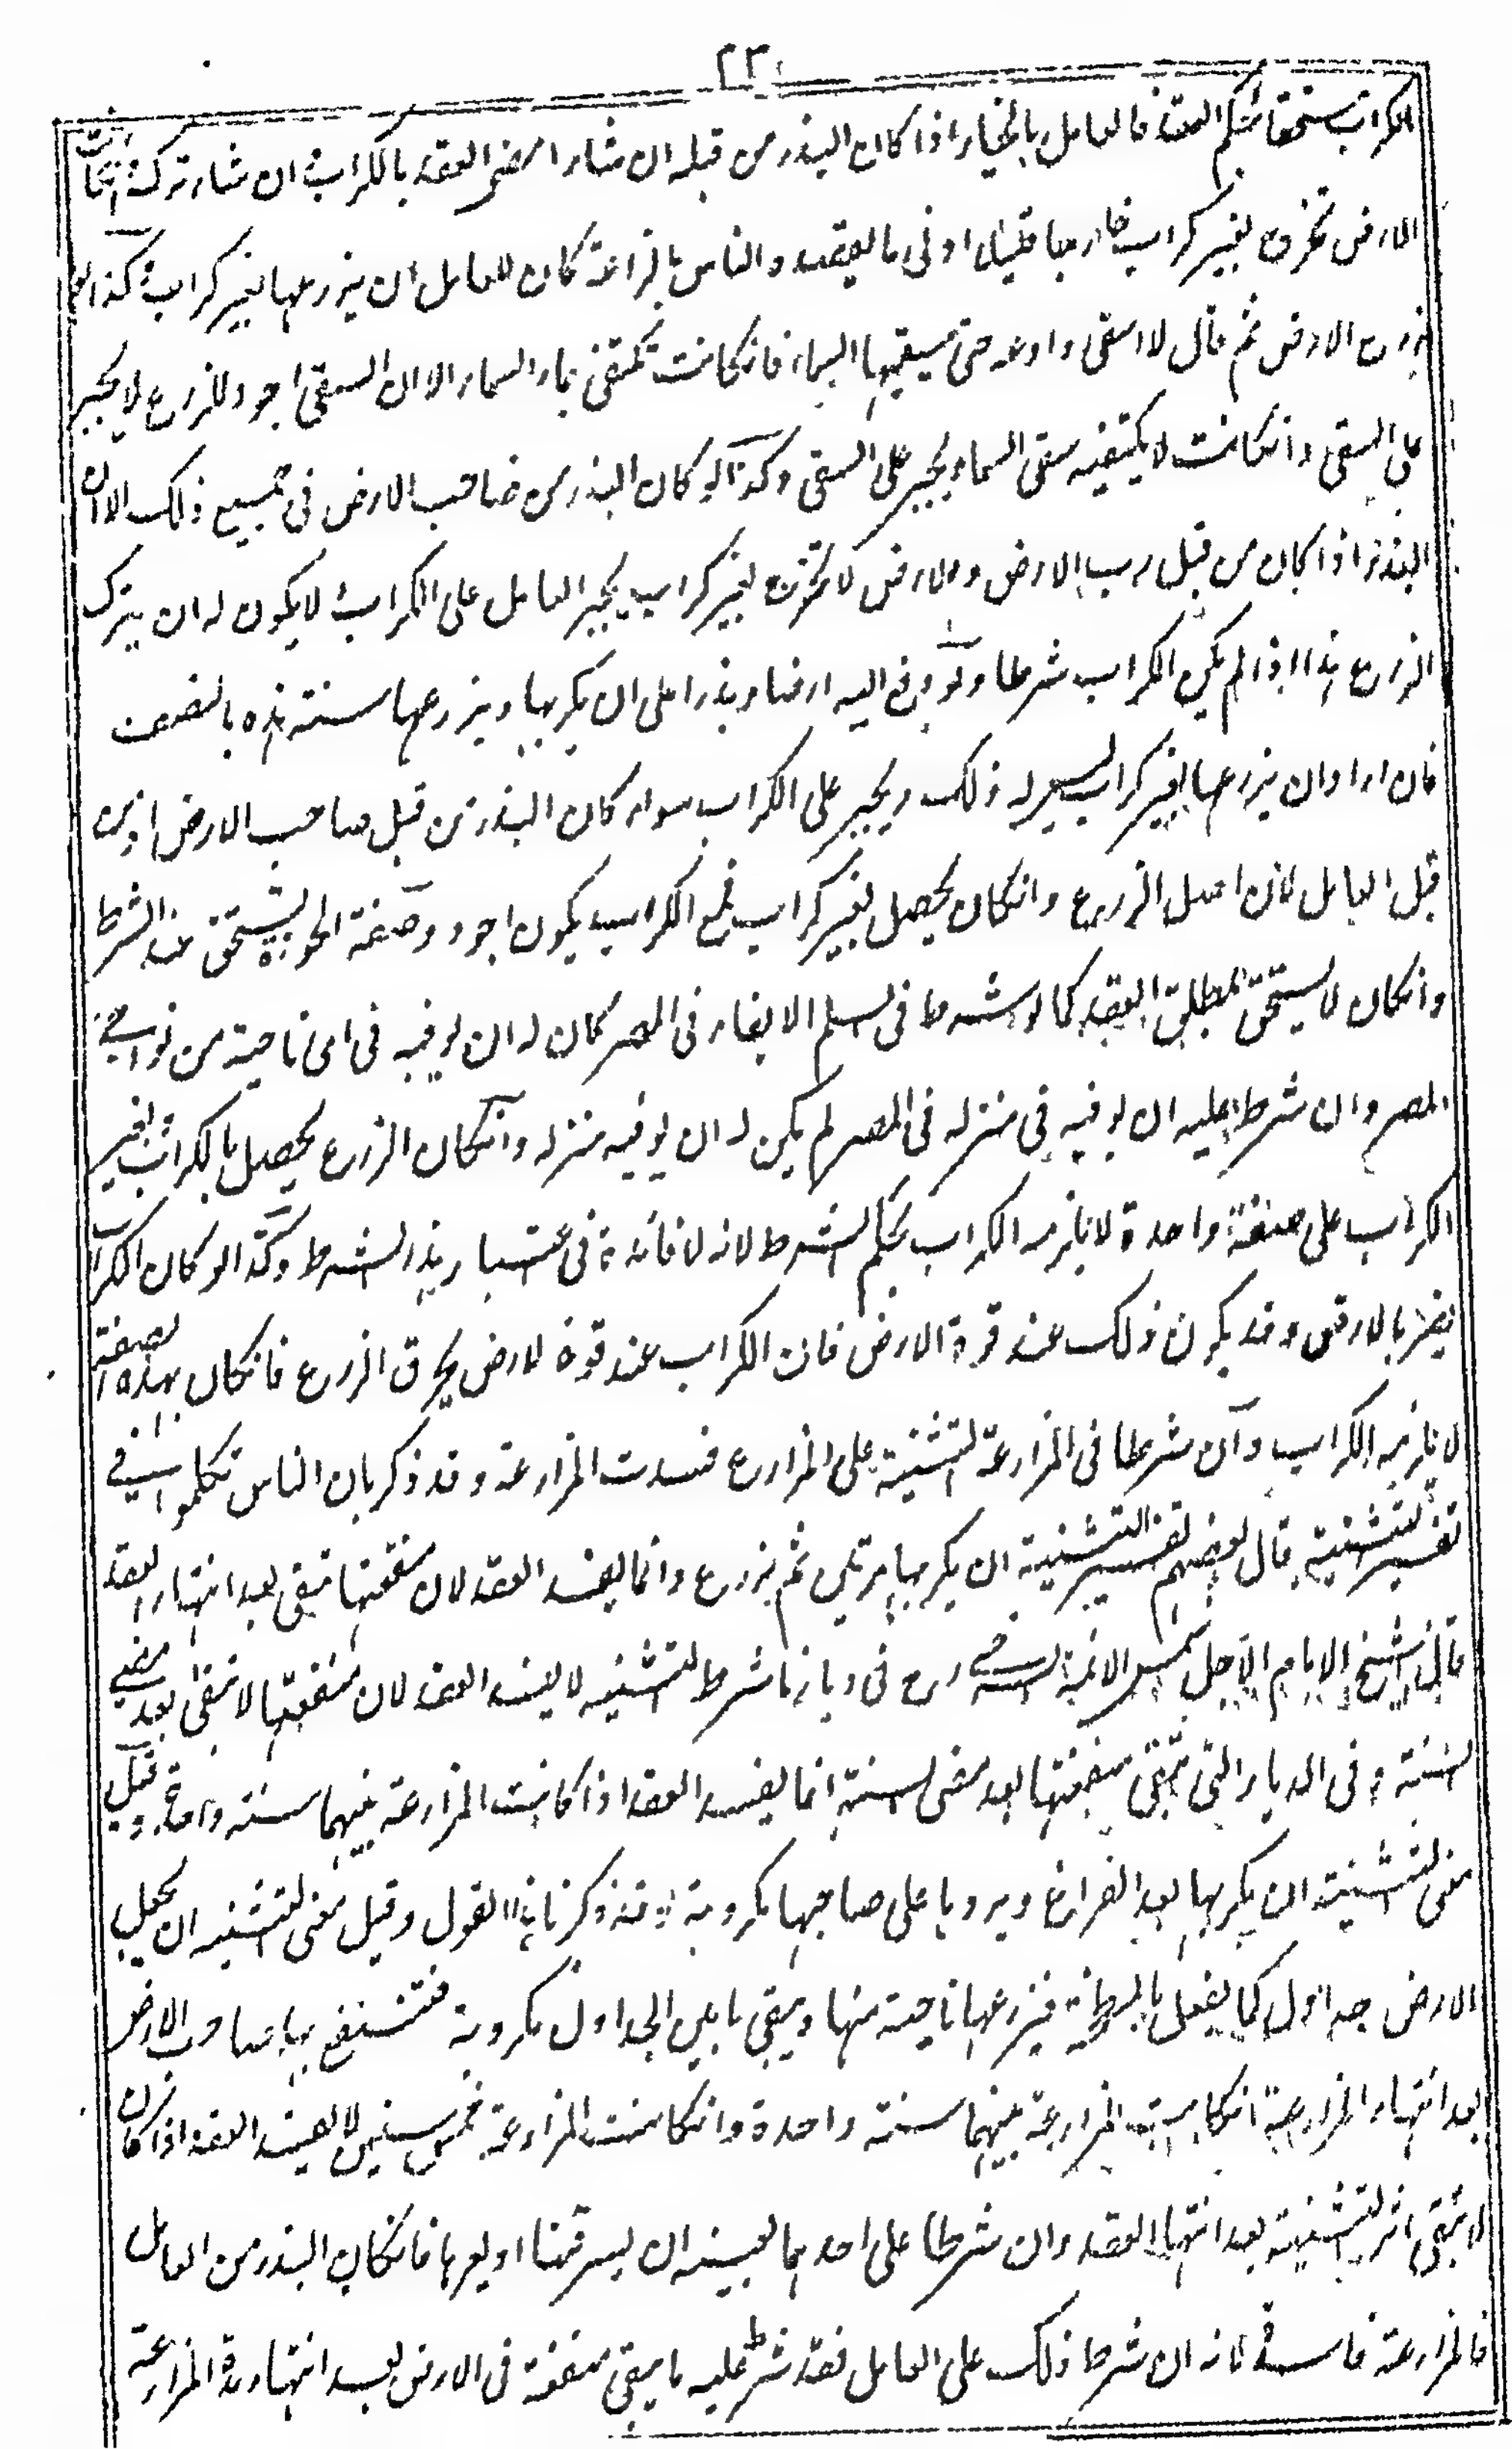 ٢٣٠
الكراب مستحقا بحكم العقد فالعامل بالخيار اذا كان البذر من قبله ان شاء امضى العقد بالكراب وان شاء ترك وان كانت
الارض تخرج بغير كراب خارجا قليلا او في ما يقصده الناس بالزراعة كان للعامل ان يزرعها بغير كراب وكذا لو
زرع الارض ثم قال لا اسقي وادعه حتى يسقيها السماء فانكانت تكتفي بماء السماء الا ان السقي اجود للزرع لا يجبر
على السقي وانكانت لا يكتفيه سقي السماء يجبر على السقي وكذا لو كان البذر من صاحب الارض في جميع ذلك الا ان
البذر اذا كان من قبل رب الارض والارض لا تخرج بغير كراب يجبر العامل على الكراب ولا يكون له ان يترك
الزرع هذا اذا لم يكن الكراب شرطا ولو دفع اليه ارضا وبذرا على ان يكربها ويزرعها سنته هذه بالنصف
فان اراد ان يزرعها بغير كراب ليس له ذلك ويجبر على الكراب سواء كان البذر من قبل صاحب الارض او من
قبل العامل لان اصل الزرع وانكان يحصل بغير كراب فمع الكراب يكون اجود وصفة الجودة يستحق عند الشرط
وانكان لا يستحق بمطلق العقد كما لو شرط في السلم الايفاء في المصر كان له ان يوفيه في اي ناحية من نواحي
المصر وان شرط عليه ان يوفيه في منزله في المصر لم يكن له ان يوفيه منزله وانكان الزرع يحصل بالكراب وبغير
الكراب على صفة واحدة لا يلزمه الكراب بحكم الشرط لانه لا فائدة في اعتبار هذا الشرط وكذا لو كان الكراب
يضر بالارض وقد يكون ذلك عند قوة الارض فان الكراب عند قوة الارض يحرق الزرع فانكان بهذه الصفة
لا يلزمه الكراب وان شرطا في المزارعة التثنية على المزارع فسدت المزارعة وقد ذكر بان الناس تكلموا في
تفسير التثنية قال بعضهم تفسير التثنية ان يكربها مرتين ثم يزرع وانما يفسد العقد لان منفعتها تبقى بعد انتهاء العقد
قال الشيخ الامام الاجل شمس الائمة السرخسي رح في ديارنا شرط التثنية لا يفسد العقد لان منفعتها لا تبقى بعد مضي
السنة وفي الديار التي تبقى منفعتها بعد مضي السنة انما يفسد العقد اذا كانت المزارعة بينهما سنة واحدة وقيل
معنى التثنية ان يكربها بعد الفراغ ويردها على صاحبها مكروبة وقد ذكرنا هذا القول وقيل معنى التثنية ان يجعل
الارض جداول كما يفعل بالمبطخة فيزرعها ناحية منها ويبقى ما بين الجداول مكروبة فتنتفع بها صاحب الارض
بعد انتهاء المزارعة انكانت المزارعة بينهما سنة واحدة وانكانت المزارعة خمس سنين لا يفسد العقد اذا كان
لا يبقى اثر التثنية بعد انتهاء العقد وان شرطا على احدهما بعينه ان يسرقنها او يعرها فانكان البذر من العامل
فالمزارعة فاسدة لانه ان شرط ذلك على العامل فقد شرط عليه ما يبقى منفعة في الارض بعد انتهاء مدة المزارعة